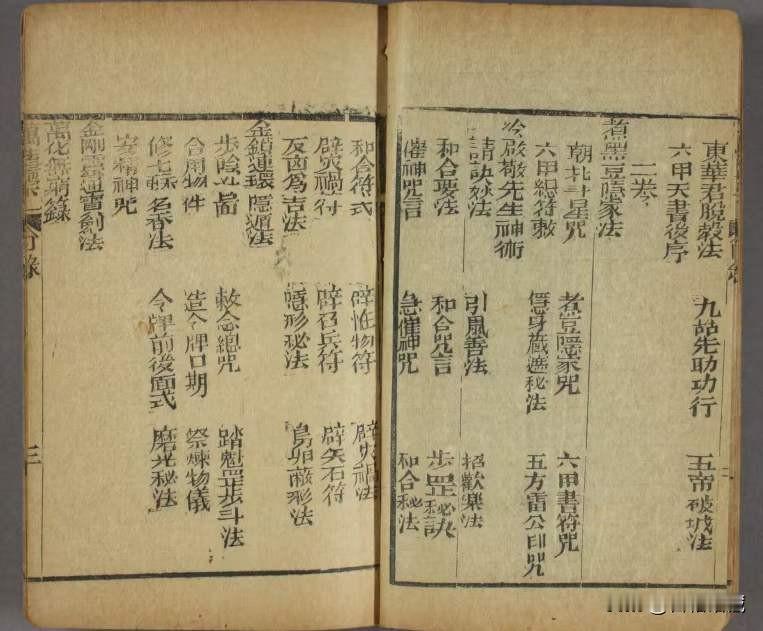 東華君脫穀法 九 先助功行 五帝破城法
六甲天書後序
二卷
煮黑豆隱家法
朝北斗星咒 煮豈隱家咒 六甲書符咒
六甲總符敕 隱身藏遁秘法 五方雷公印咒
冷啟敬先生神術
請 訣妙法 引風善法 招歡樂法
和合要法 和合咒言 步罡秘訣
催神咒言 急催神咒 和合秘法
和合符式 辟怪物符 辟 禍法
辟災禍符 辟召兵符 辟矢石符
反凶為吉法 隱形秘法 烏卵蔽形法
金鎖連環隱遁法
步陰 啚 敕念總咒 踏魁罡步斗法
合用物件 造令牌口期 祭煉物儀
修 名香法 令牌前後面式 磨光秘法
安精神咒
金剛靈通寶劍法
萬化無 錄
目錄
三